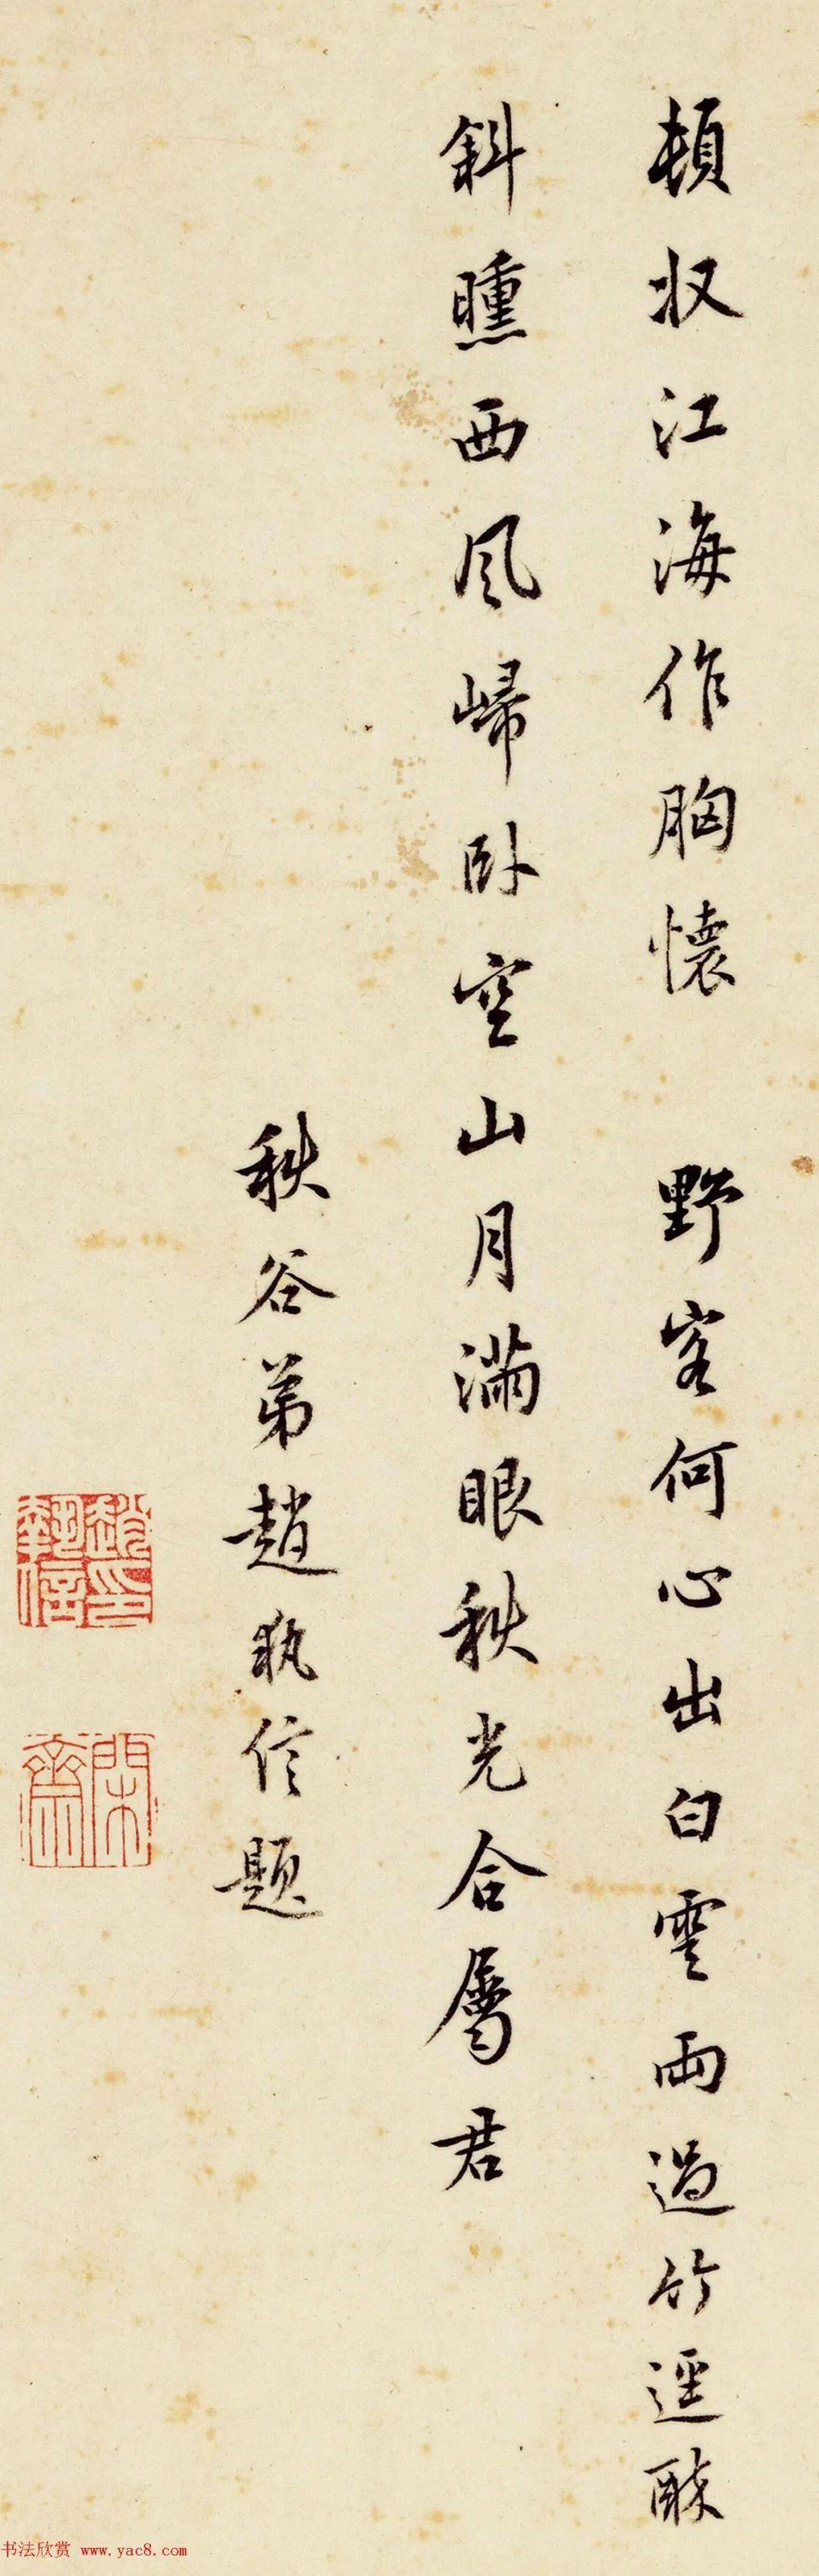 頓収江海作胸懷 野客何心出白雲雨過竹逕酥
斜曛西風歸卧空山月滿眼秋光合屬君
秋谷弟趙執信題
趙執信印
閑齋
书法欣赏 www.yac8.com